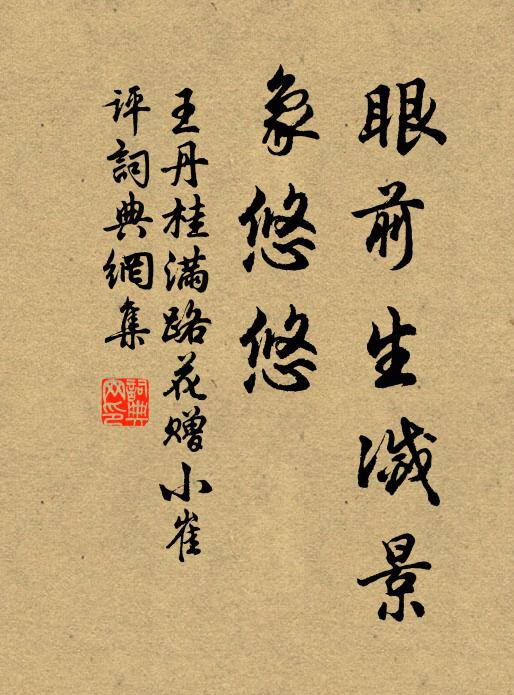 眼前生滅景
象悠悠
王丹桂满路花赠小崔
评詞典網集
詞典網印